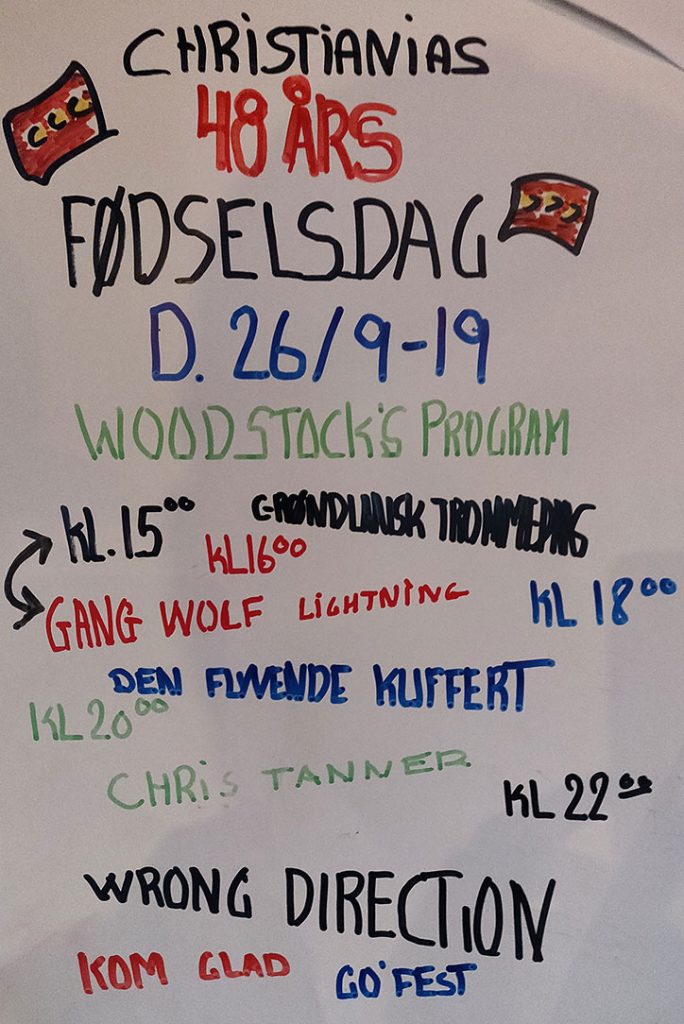 CHRISTIANIAS
48 ÅRS
FØDSELSDAG
D. 26/9-19
WOODSTOCK'S PROGRAM
KL. 15⁰⁰ GRØNDLANSK TROMMEDANS
KL 16⁰⁰
GANG WOLF LIGHTNING
KL 18⁰⁰
DEN FLYVENDE KUFFERT
KL 20⁰⁰
CHRIS TANNER
KL 22⁰⁰
WRONG DIRECTION
KOM GLAD GO' FEST